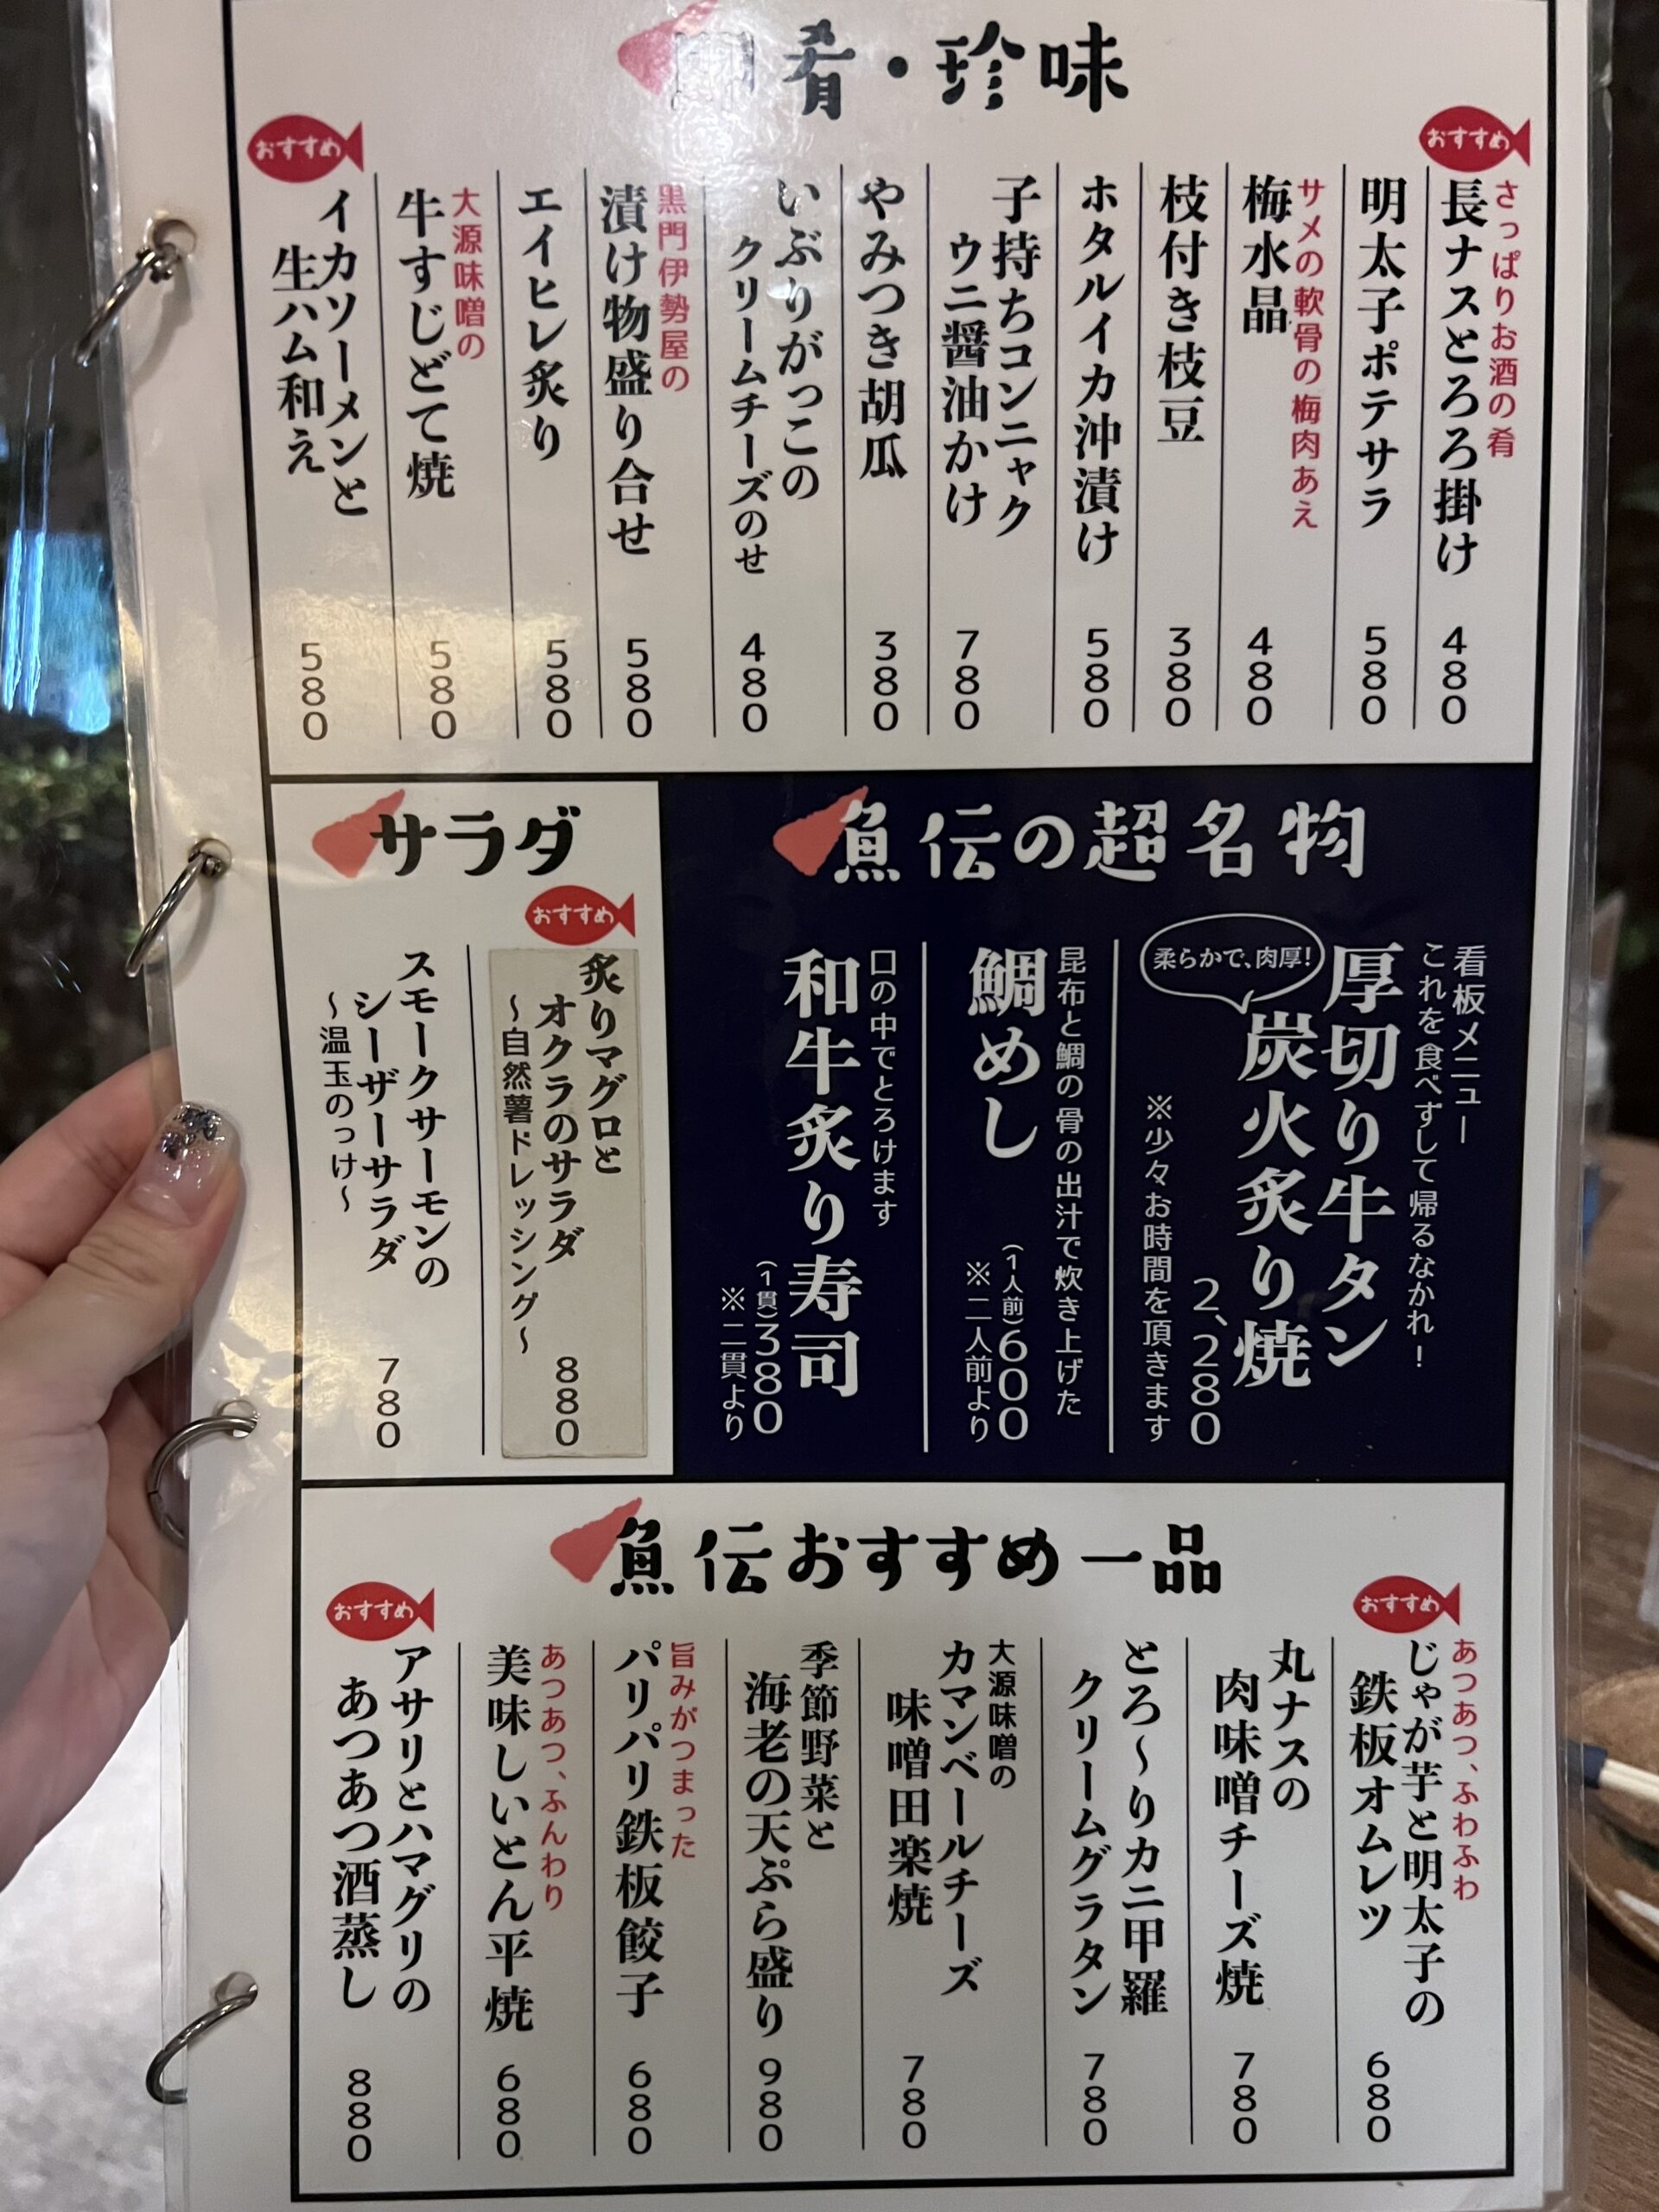 肴・珍味
おすすめ
さっぱりお酒の肴
長ナスとろろ掛け
480
明太子ポテサラ
580
サメの軟骨の梅肉あえ
梅水晶
480
枝付き枝豆
380
ホタルイカ沖漬け
580
子持ちコンニャク
ウニ醤油かけ
780
やみつき胡瓜
380
いぶりがっこの
クリームチーズのせ
480
黒門伊勢屋の
漬け物盛り合せ
580
エイヒレ炙り
580
大源味噌の
牛すじどて焼
580
おすすめ
イカソーメンと
生ハム和え
580
魚伝の超名物
看板メニュー
これを食べずして帰るなかれ!
厚切り牛タン
炭火炙り焼
柔らかで、肉厚!
2、280
※少々お時間を頂きます
昆布と鯛の骨の出汁で炊き上げた
鯛めし
(1人前)600
※二人前より
口の中でとろけます
和牛炙り寿司
(1貫)380
※二貫より
サラダ
おすすめ
炙りマグロと
オクラのサラダ
〜自然薯ドレッシング〜
880
スモークサーモンの
シーザーサラダ
〜温玉のっけ〜
780
魚伝おすすめ一品
おすすめ
あつあつ、ふわふわ
じゃが芋と明太子の
鉄板オムレツ
680
丸ナスの
肉味噌チーズ焼
780
とろ〜りカニ甲羅
クリームグラタン
780
大源味噌の
カマンベールチーズ
味噌田楽焼
780
季節野菜と
海老の天ぷら盛り
980
旨みがつまった
パリパリ鉄板餃子
680
あつあつ、ふんわり
美味しいとん平焼
680
おすすめ
アサリとハマグリの
あつあつ酒蒸し
880